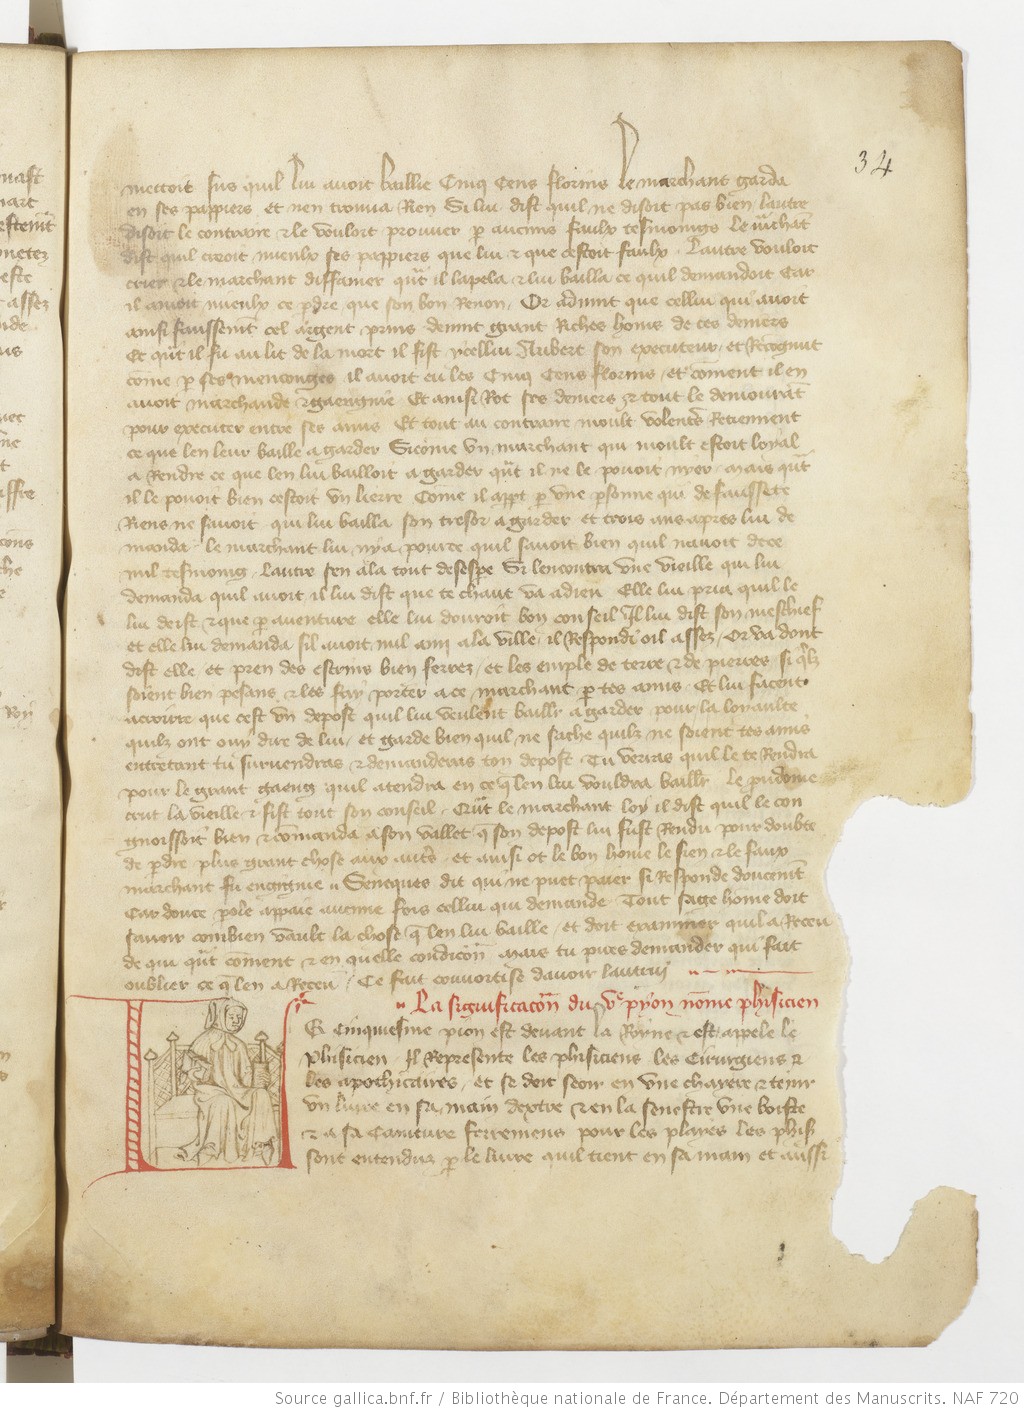 34
mettoit sus quil lui avoit baillie Cinq Cens florins le marchant garda
en ses pappiers et nen trouva Ren Si lui dist quil ne disoit pas bien lautre
disoit le contraire et le vouloit prouver p aucuns faulx tesmoings le mchāt
dist quil creoit mieulx ses pappiers que lui et que cestoit faulx . Lautre vouloit
crier et le marchant diffamer qūt il lapela et lui bailla ce quil demandoit Car
il amoit mieulx ce pdre que son bon Renon / Or advint que cellui qui avoit
ainsi faussemt cel argent prins devint grant Riches homs de ces deniers
Et qūt il fu au lit de la mort il fist ycellui Aubert son executeur / et Recognut
cōme p ses mencongēs il avoit eu les Cinq Cens florins / et cōment il en
avoit marchande et gaengnie Et ainsi Rot ses deniers et tout le demourāt
pour executer entre ses amis Et tout au contraire moult volentrs Retienent
ce que len leur baille a garder Sicōme un marchant qui moult estoit loyal
a Rendre ce que len lui bailloit a garder qūt il ne le povoit nyer mais qūt
il le povoit bien cestoit un lierre Cōme il appt p une psonne qui de faussete
Riens ne savoit qui lui bailla son tresor a garder et trois ans apres lui de
manda le marchant lui nya pource quil savoit bien quil navoit de ce
nul tesmoing / Lautre sen ala tout desespe Si lencontra une vieille qui lui
demanda quil avoit il lui dist que te chaut va a dieu Elle lui pria quil le
lui deist et que p aventure elle lui donroit bon conseil Il lui dist son meschief
et elle lui demanda sil avoit nul amy a la ville il Respondi oil assez / Or va dont
dist elle et pren des escrins bien ferrez / et les emple de terre et de pierres si qlz
soient bien pesans et les fay porter a ce marchant p tes amis Et lui facent
acroirre que cest un depost quil lui veulent baillr a garder pour la loyaulte
quilz ont ouy dire de lui / et garde bien quil ne sache quilz ne soient tes amis
entretant tu survendras et demanderas ton depost Tu verras quil le te Rendra
pour le grant gaeng quil atendra en ce q len lui vouldra baillr Le pudome
crut la vieille et fist tout son conseil / Qūt le marchant loy il dist quil le con
gnoissoit bien et cōmanda a son vallet q son depost lui fust Rendu pour doubte
de pdre plus grant chose aux autrs et ainsi ot le bon hōme le sien et le faux
marchant fu engignie Seneques dit qui ne puet paier si Responde doucemt
Car douce pole appaie aucune fois cellui qui demande Tout sage hōme doit
savoir combien vault la chose q len lui baille / et doit examiner quil a Receu
de qui qūt cōment et en quelle condicōn Mais tu pues demander qui fait
oublier ce q len a Receu / Ce fait couvoitise davoir lautrui
La significacōn du ve pyon nōme phisicien
Le Cinquiesme pion est devant la Royne et est appele le
phisicien Il Represente les phisiciens les Cirurgiens et
les apothicaires / et se doit seoir en une chayere et tenir
un livre en sa main dextre et en la senestre une boiste
et a sa Cainture ferremens pour les playes les phis
sont entenduz p le livre quil tient en sa main et aussi
Source gallica.bnf.fr / Bibliothèque nationale de France. Département des Manuscrits. NAF 720